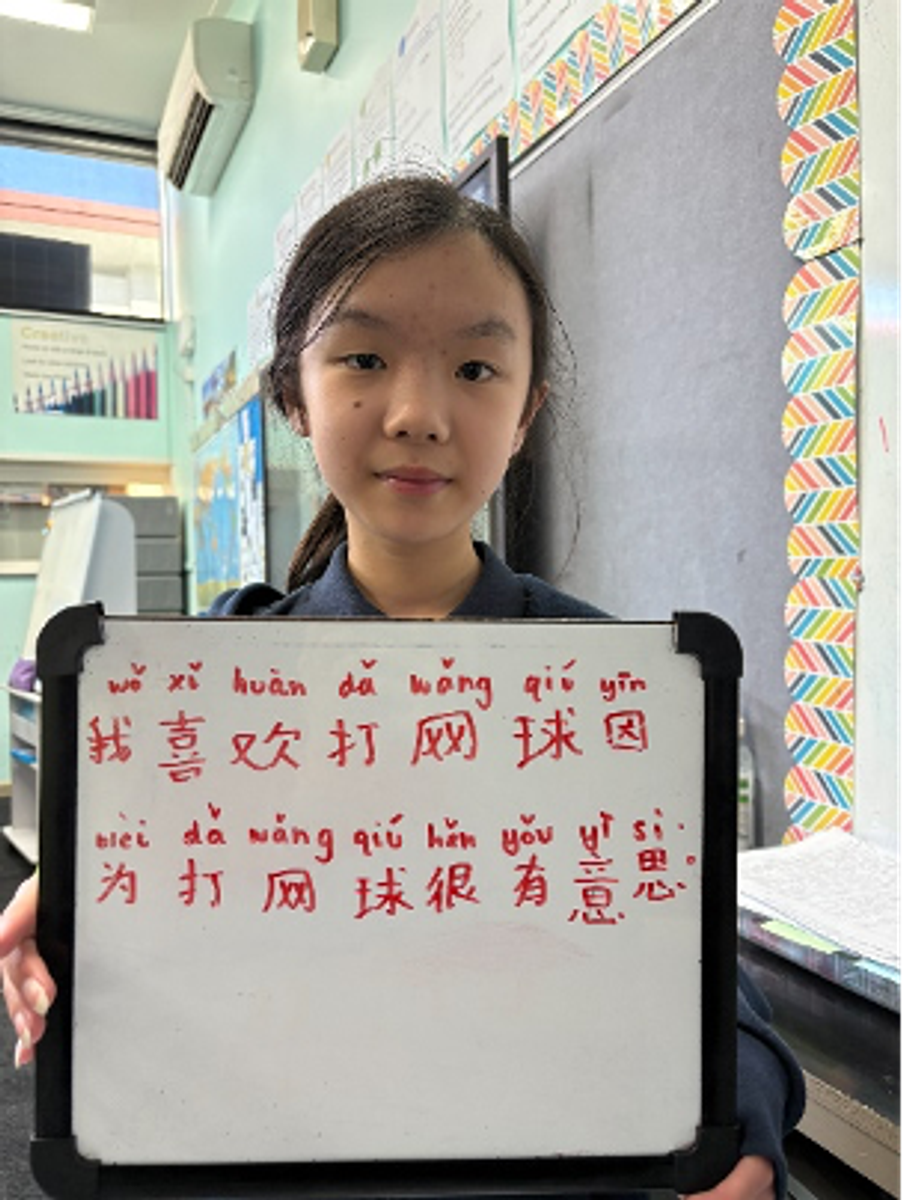 Creative
wǒ xǐ huān dǎ wǎng qiú yīn
我喜欢打网球因
wèi dǎ wǎng qiú hěn yǒu yì si.
为打网球很有意思。